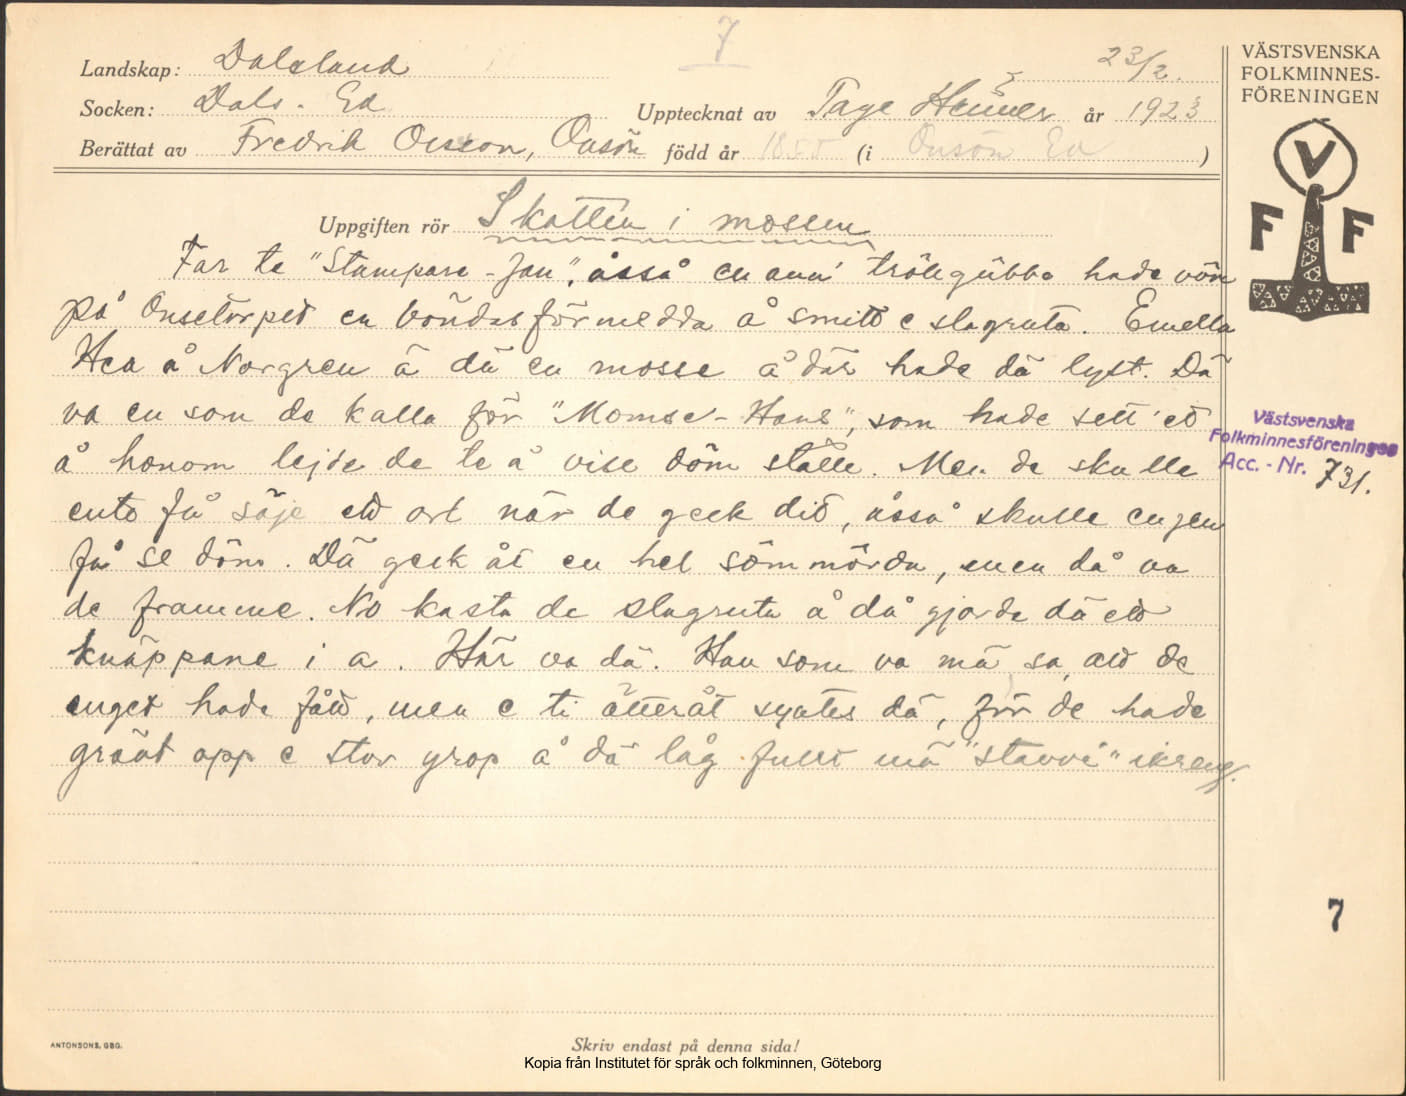 7
Landskap: Dalsland 23/2.
Socken: Dals-Ed Upptecknat av Tage Heimer år 1923
Berättat av Fredrik Olsson, Önsön född år 1855 (i Önsön Ed)
Uppgiften rör Skatten i mossen
Far te "Stampare-Jan", åsså en ann' trölgubbe hade vön
på Onsetorpet en böndas förmedda å smitt e slagruta. Emella
Hea å Norgren ä dä en mosse å där hade dä lyst. Dä
va en som de kalla för "Momse-Hans", som hade sett et
å honom lejde de te å vise döm ställe. Men de skulle
ente få säje ett ort när de geck dit, åsså skulle engen
få se döm. Dä geck åt en hel sömmörda, men då va
de framme. No kasta de slagruta å då gjorde dä ett
knäppane i a. Här va dä. Han som va mä sa, att de
enget hade fått, men e ti ätteråt syntes dä, för de hade
grävt opp e stor grop å dä låg fullt mä "stavvi" ikreng.
VÄSTSVENSKA
FOLKMINNES-
FÖRENINGEN
V
F F
Västsvenska
Folkminnesföreningen
Acc.-Nr. 731.
7
ANTONSONS, GBG.
Skriv endast på denna sida!
Kopia från Institutet för språk och folkminnen, Göteborg